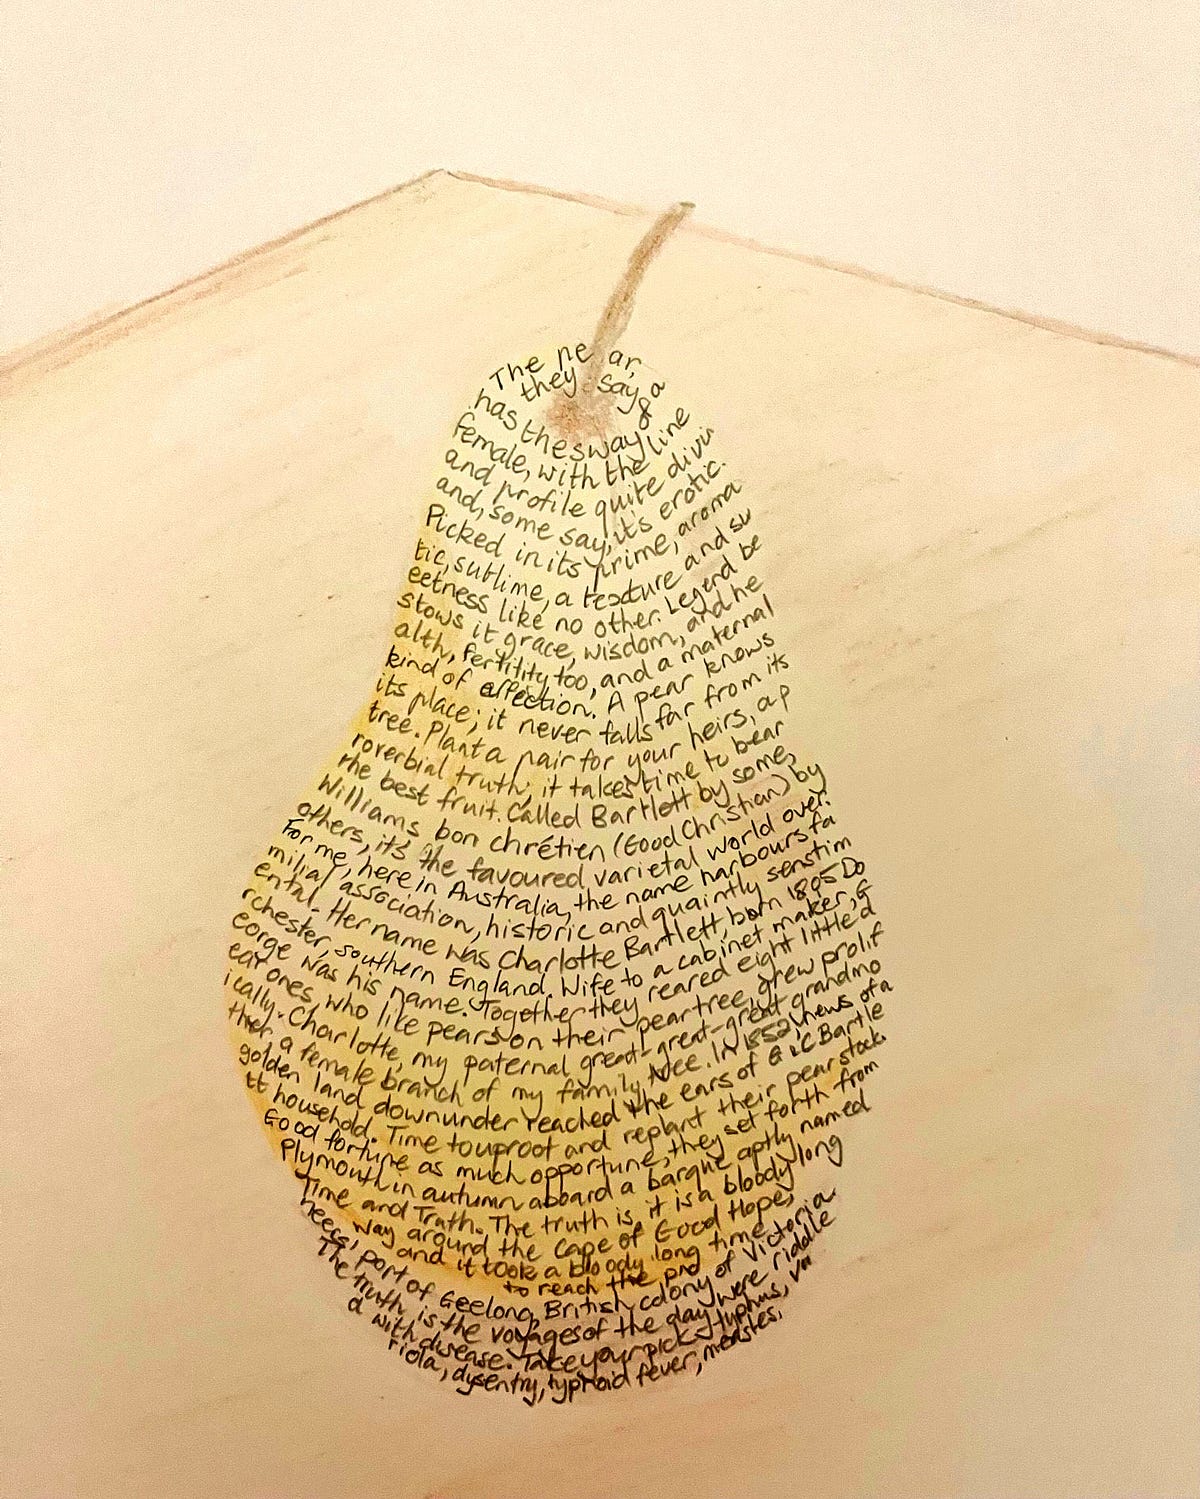 The pe ar,
they say
has the sway of a
female, with the line
and profile quite divin
and, some say, it's erotic.
Picked in its prime, aroma
tic, sublime, a texture and sw
eetness like no other. Legend be
stows it grace, wisdom, and he
alth, fertitity too, and a maternal
kind of affection. A pear knows
its place; it never falls far from its
tree. Plant a pair for your heirs, a p
roverbial truth; it takes time to bear
the best fruit. Called Bartlett by some,
Williams bon chrétien (Good Christian) by
others, it's the favoured varietal world over.
For me, here in Australia, the name harbours fa
milial association, historic and quaintly senstim
ental. Her name was Charlotte Bartlett, born 1805 Do
rchester, southern England. Wife to a cabinet maker, G
eorge was his name. Together they reared eight little d
ear ones, who like pears on their peartree, grew prolif
ically. Charlotte, my paternal great-great-great grandmo
ther a female branch of my family tree. In 1852, news of a
golden land downunder reached the ears of G & C Bartle
tt household. Time to uproot and replant their pear stock.
Good fortune as much opportune, they set forth from
Plymouth in autumn aboard a barque aptly named
Time and Truth. The truth is it is a bloody long
way around the Cape of Good Hope,
and it took a bloody long time
to reach the
neece, port of Geelong, British colony of Victoria.
The truth is the voyages of the day were riddle
d with disease. Take your pick, typhus, va
riola, dysentry, typhoid fever, measles,